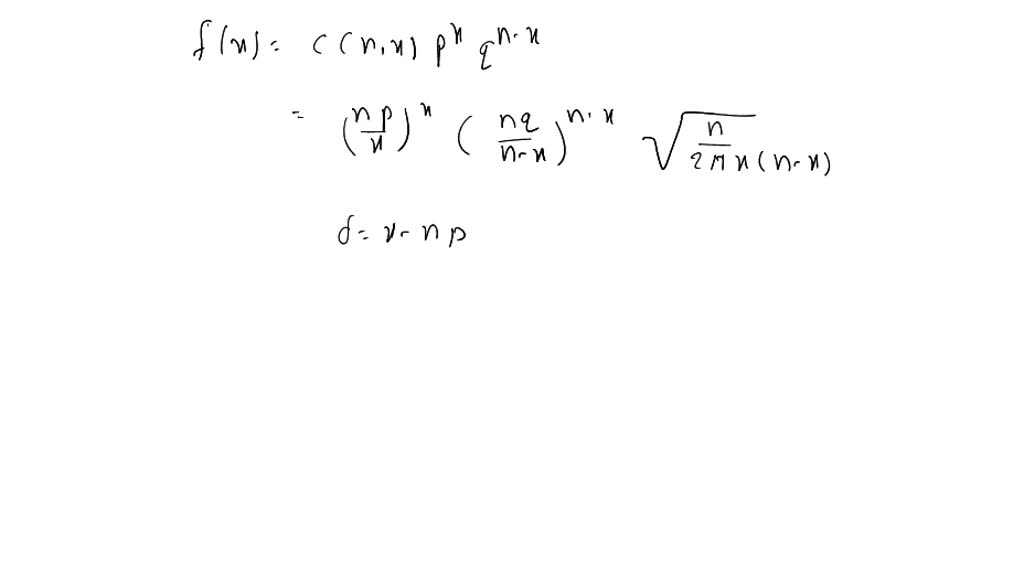 f(x) = C(n,x) p^x q^{n-x}
= (np/x)^x (nq/(n-x))^{n-x} √(n/(2πx(n-x)))
δ = x - np